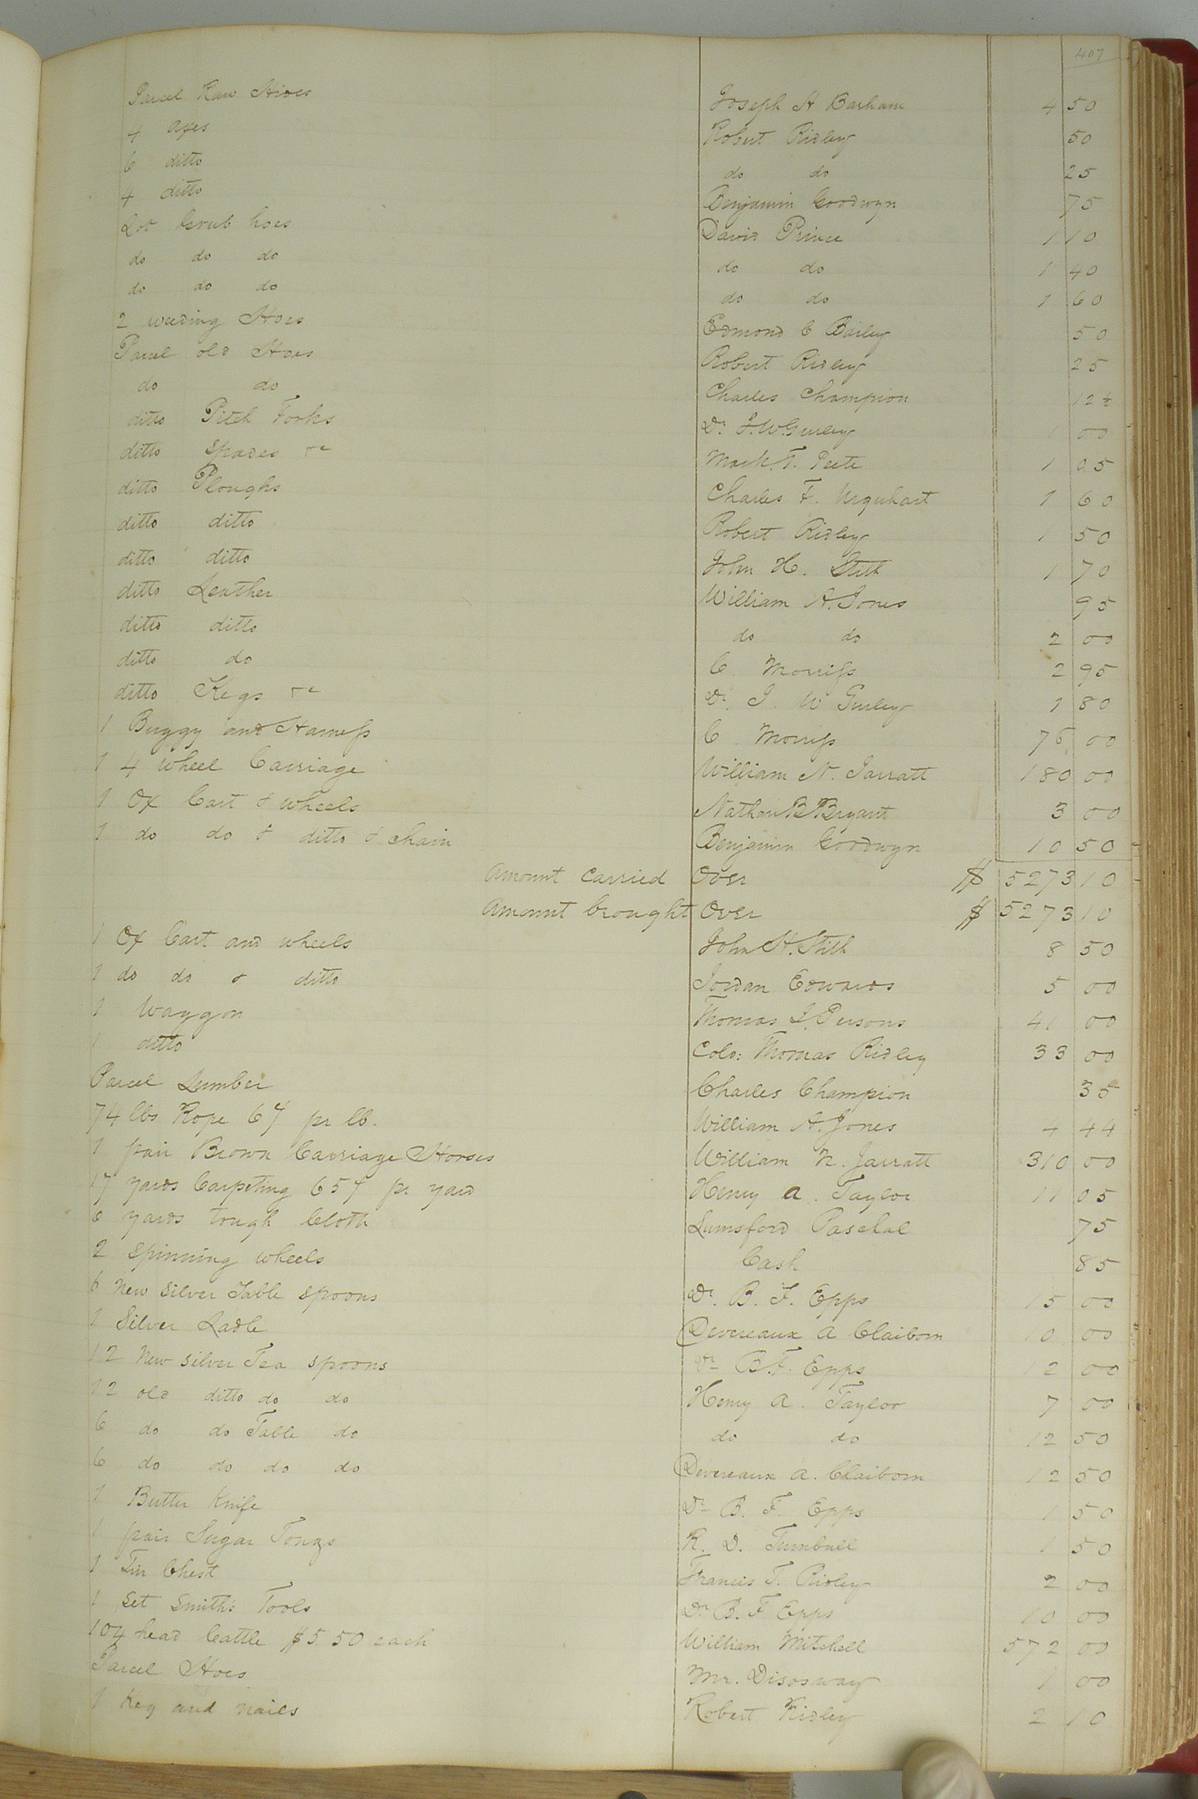 407
Parcel Raw Hides Joseph H Barham 4 50
4 Axes Robert Ridley 50
6 ditto do do 25
4 ditto Benjamin Goodwyn 75
Lot Grub hoes David Prince 1 10
do do do do do 1 40
do do do do do 1 60
2 weeding Hoes Edmond C Bailey 50
Parcel old Hoes Robert Ridley 25
do do Charles Champion 12½
ditto Pitch Forks Dr. J. W Gurley 1 00
ditto Spades &c Mark. T. Peete 1 05
ditto Ploughs Charles F. Urquhart 1 60
ditto ditto Robert Ridley 1 50
ditto ditto John H. Stith 1 70
ditto Leather William A. Jones 95
ditto ditto do do 2 00
ditto do C. Morriss 2 95
ditto Kegs &c Dr. J. W Gurley 1 80
1 Buggy and Harness C. Morriss 76 00
1 4 wheel Carriage William N. Jarratt 180 00
1 Ox Cart & wheels Nathan B. Bryant 3 00
1 do do & ditto & chain Benjamin Goodwyn 10 50
Amount Carried Over $ 5273 10
Amount brought Over $ 5273 10
1 Ox Cart and wheels John H. Stith 8 50
1 do do & ditto Jordan Edwards 5 00
1 Waggon Thomas L. Persons 41 00
1 ditto Colo: Thomas Ridley 33 00
Parcel Lumber Charles Champion 35
74 lbs Rope 6¢ pr lb. William A. Jones 4 44
1 pair Brown Carriage Horses William N. Jarratt 310 00
17 yards Carpeting 65¢ pr yard Henry A. Taylor 11 05
6 yards tough Cloth Lunsford Paschal 75
2 Spinning wheels Cash 85
6 New Silver Table Spoons Dr. B. F. Epps 15 00
1 Silver Ladle Devereaux A Claiborn 10 00
12 New Silver Tea Spoons Dr B. F. Epps 12 00
12 old ditto do do Henry A. Taylor 7 00
6 do do Table do do do 12 50
6 do do do do Devereaux A. Claiborn 12 50
1 Butter Knife Dr B. F. Epps 1 50
1 pair Sugar Tongs R. D. Turnbull 1 50
1 Chest Francis T. Ridley 2 00
1 Set Smith's Tools Dr. B. F Epps 10 00
104 head Cattle $5.50 each William Mitchell 572 00
Parcel Hoes Mr. Disosway 1 00
1 Keg and nails Robert Ridley 2 10